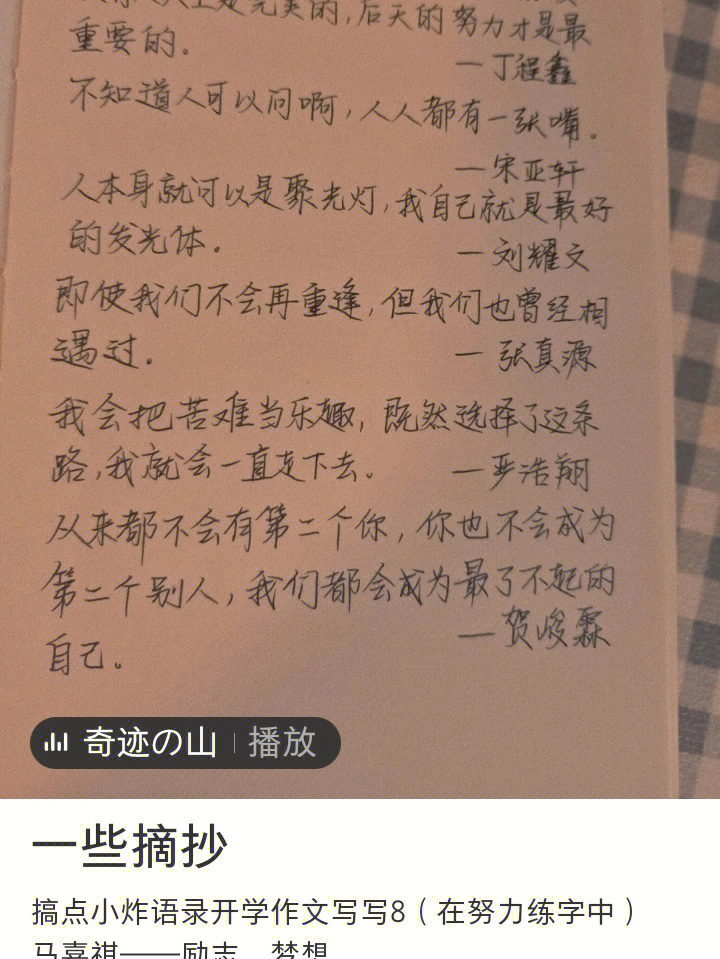 是完美的,后天的努力才是最
重要的。
—丁程鑫
不知道人可以问啊,人人都有一张嘴。
—宋亚轩
人本身就可以是聚光灯,我自己就是最好
的发光体。
—刘耀文
即使我们不会再重逢,但我们也曾经相
遇过。
—张真源
我会把苦难当乐趣,既然选择了这条
路,我就会一直走下去。
—严浩翔
从来都不会有第二个你,你也不会成为
第二个别人,我们都会成为最了不起的
—贺峻霖
自己。
奇迹の山 | 播放
一些摘抄
搞点小炸语录开学作文写写8(在努力练字中)
马嘉祺——励志、梦想